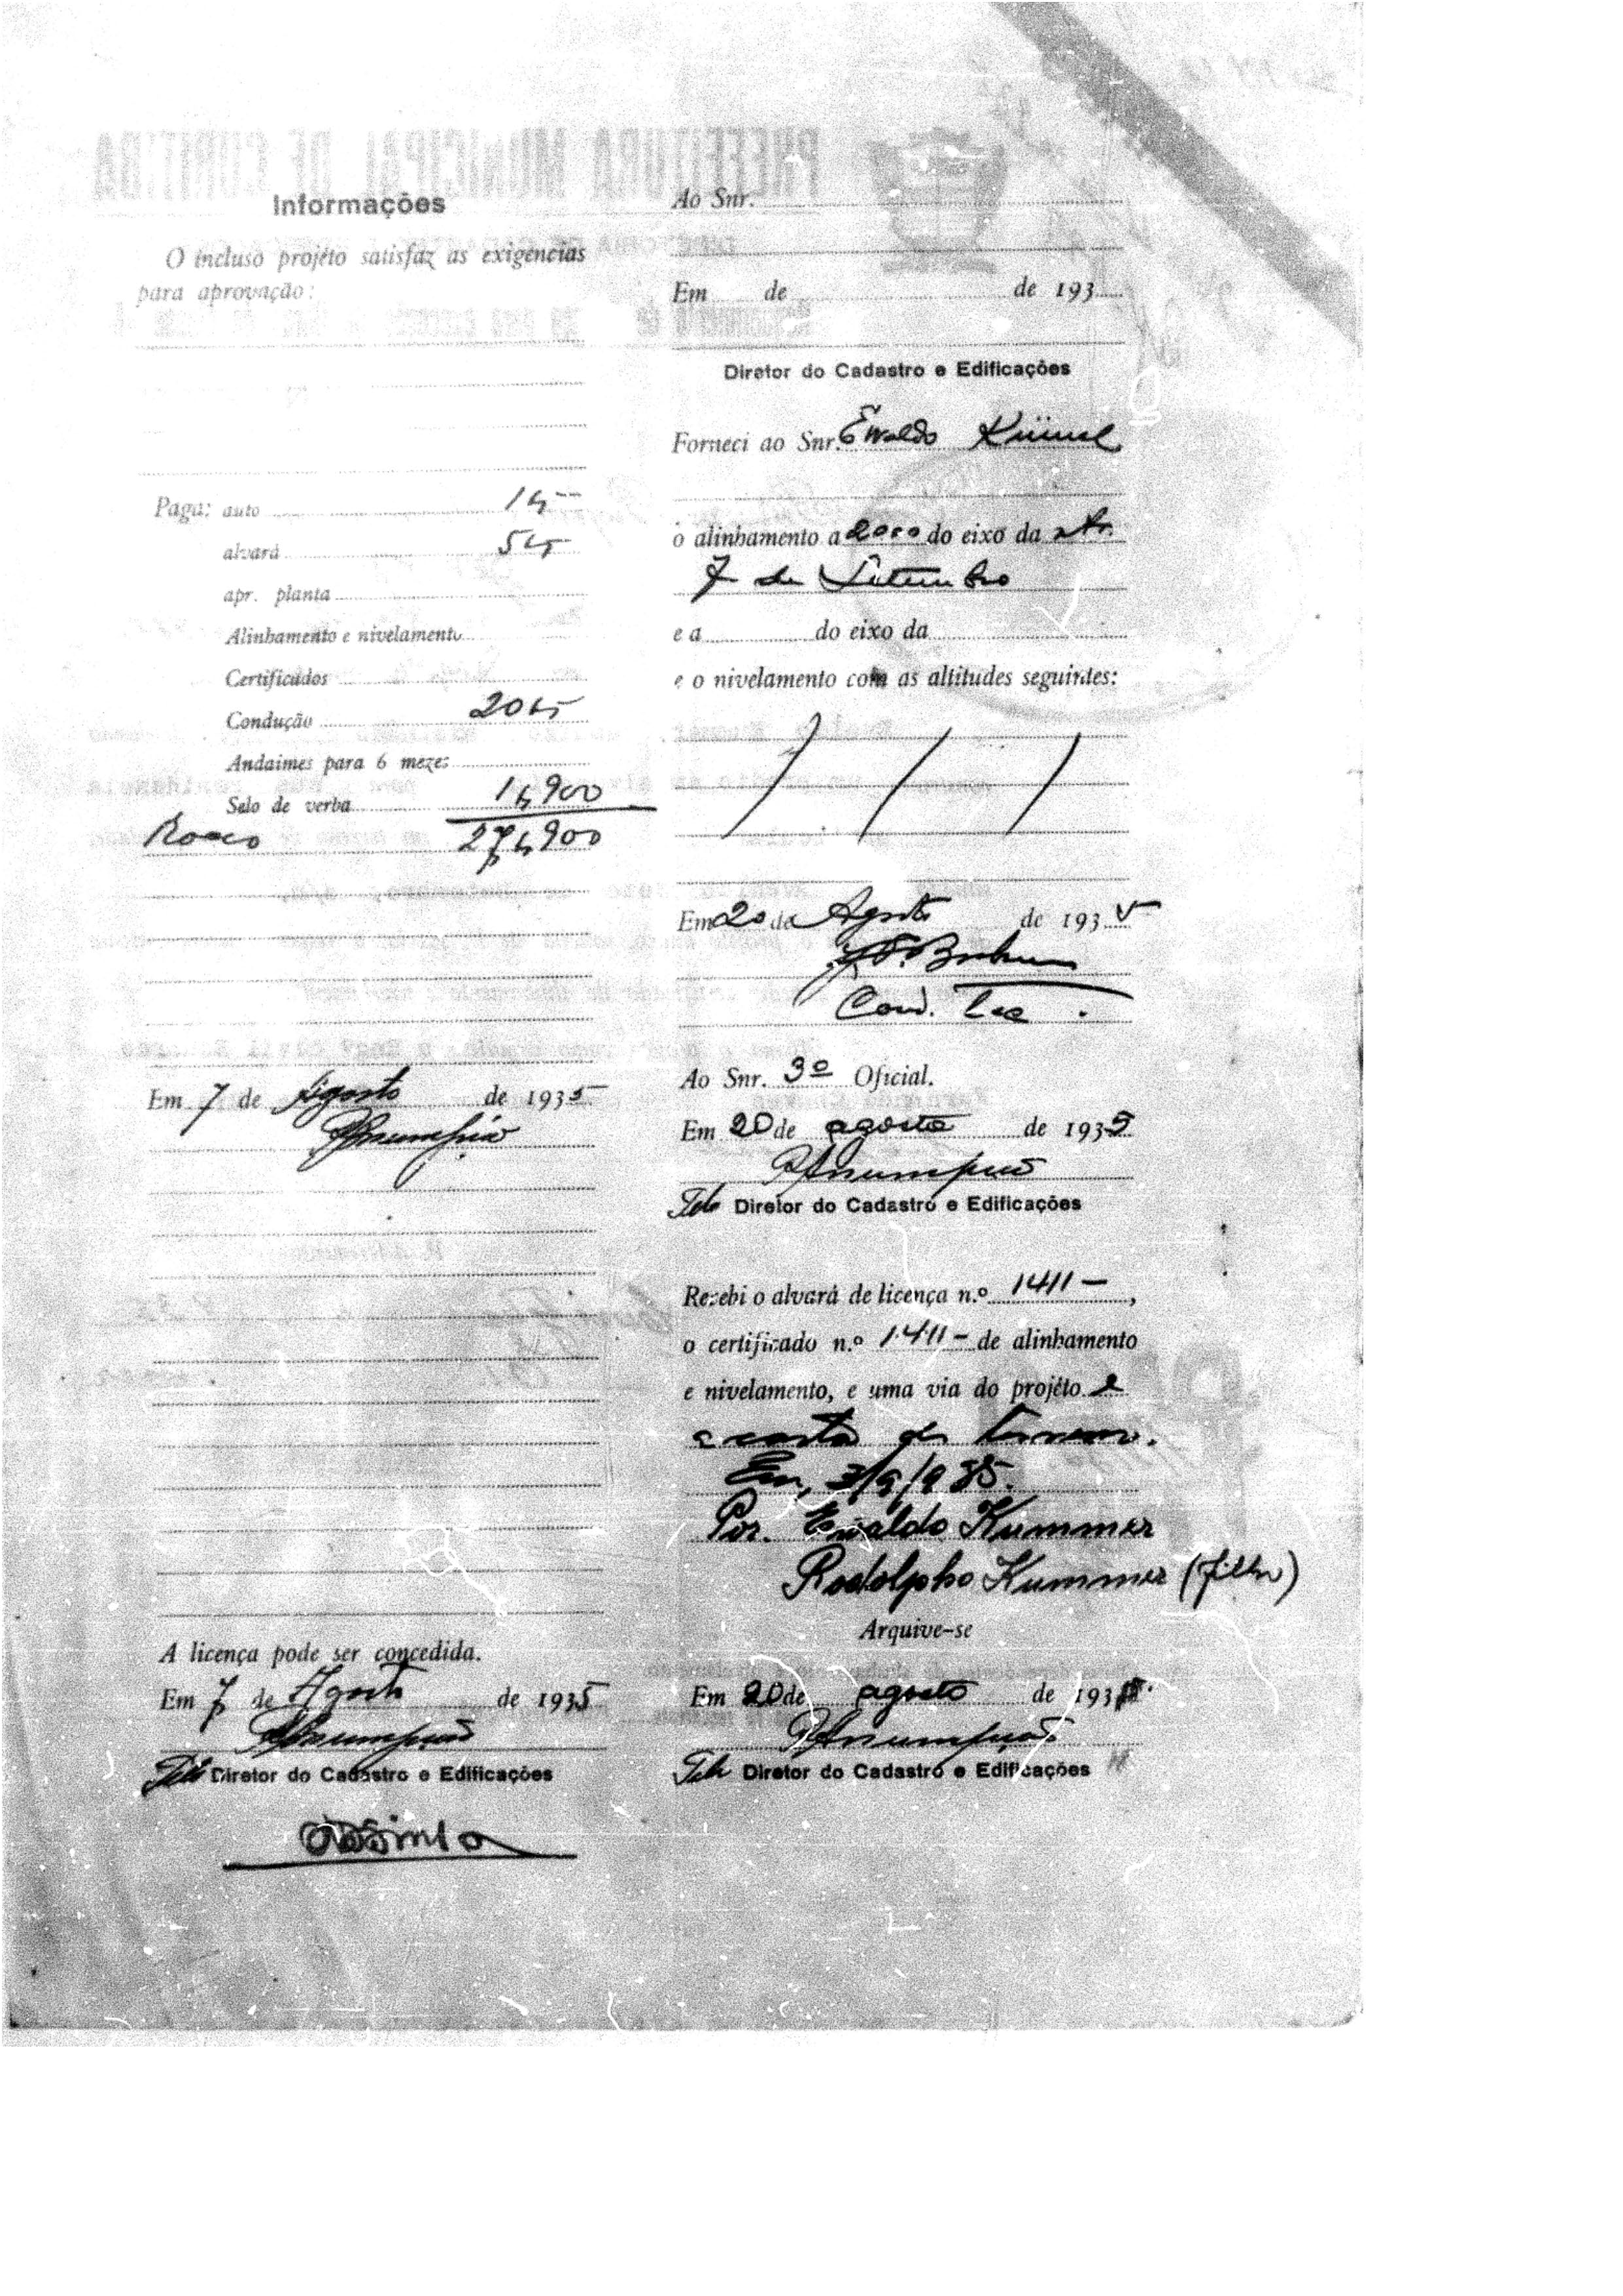 Informações
O incluso projéto satisfaz as exigencias
para aprovação:
Paga: auto 1$
alvará 5$
apr. planta
Alinhamento e nivelamento
Certificados
Condução 20$
Andaimes para 6 mezes
Selo de verba 1$900
27$900
Em 7 de Agosto de 1935
A licença pode ser concedida.
Em 7 de Agosto de 1935
Diretor do Cadastro e Edificações
Ao Snr.
Em de de 193
Diretor do Cadastro e Edificações
Forneci ao Snr. Ewaldo
o alinhamento a do eixo da
7 de Setembro
e a do eixo da
e o nivelamento com as altitudes seguintes:
Em 20 de Agosto de 1935
Cond. Tec.
Ao Snr. 3º Oficial.
Em 20 de agosto de 1935
Diretor do Cadastro e Edificações
Recebi o alvará de licença n.º 1411 -,
o certificado n.º 1411 - de alinhamento
e nivelamento, e uma via do projéto e
a carta de terreno.
Em, 3/9/935.
Por. Ewaldo Kummer
Rodolpho Kummer (filho)
Arquive-se
Em 20 de agosto de 193
Diretor do Cadastro e Edificações